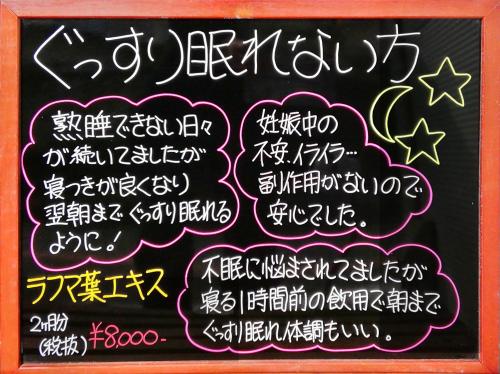 ぐっすり眠れない方
熟睡できない日々
が続いてましたが
寝つきが良くなり
翌朝までぐっすり眠れる
ように!
妊娠中の
不安、イライラ…
副作用がないので
安心でした。
不眠に悩まされてましたが
寝る1時間前の飲用で朝まで
ぐっすり眠れ体調もいい。
ラフマ葉エキス
2ヶ月分
(税抜)
¥8,000-